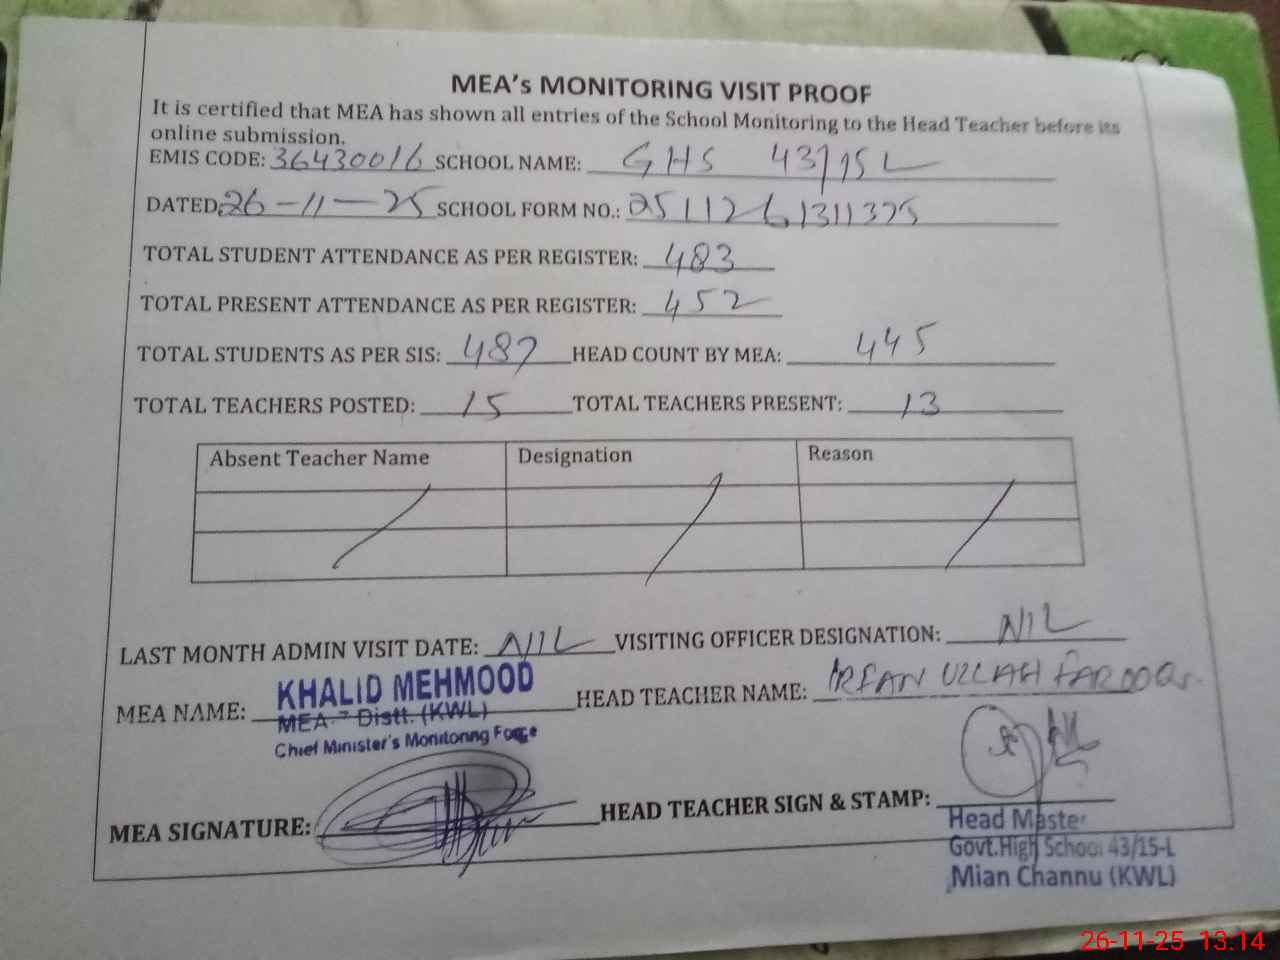 MEA's MONITORING VISIT PROOF
It is certified that MEA has shown all entries of the School Monitoring to the Head Teacher before its
online submission.
EMIS CODE: 36430016 SCHOOL NAME: GHS 43/15L
DATED: 26-11-25 SCHOOL FORM NO.: 2511261311325
TOTAL STUDENT ATTENDANCE AS PER REGISTER: 483
TOTAL PRESENT ATTENDANCE AS PER REGISTER: 452
TOTAL STUDENTS AS PER SIS: 487 HEAD COUNT BY MEA: 445
TOTAL TEACHERS POSTED: 15 TOTAL TEACHERS PRESENT: 13
Absent Teacher Name Designation Reason
LAST MONTH ADMIN VISIT DATE: NIL VISITING OFFICER DESIGNATION: NIL
MEA NAME: KHALID MEHMOOD HEAD TEACHER NAME: IRFAN ULLAH FAROOQI
MEA-7 Distt. (KWL)
Chief Minister's Monitoring Force
MEA SIGNATURE: HEAD TEACHER SIGN & STAMP:
Head Master
Govt.High School 43/15-L
Mian Channu (KWL)
26-11-25 13:14